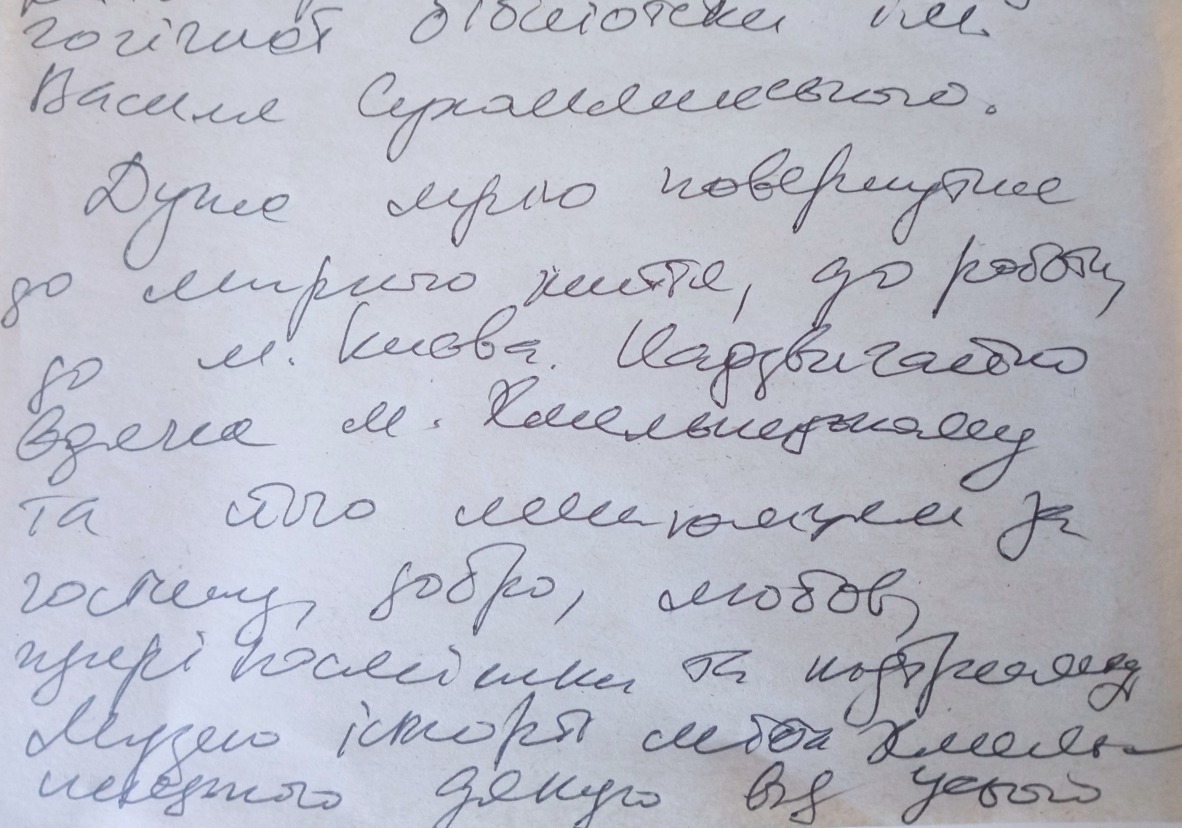 гогічної бібліотеки ім.
Василя Сухомлинського.
Дуже мрію повернутись
до мирного життя, до роботи,
до м. Києва. Надзвичайно
вдячна м. Хмельницькому
та його мешканцям за
гостину, добро, любов,
щирі посмішки та підтримку.
Музею історії міста Хмель-
ницького дякую від усього